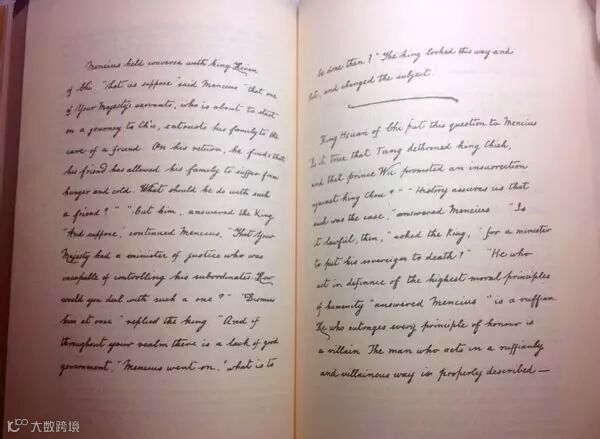 Mencius held converse with King Hsüan
of Chi, "Let us suppose" said Mencius "that one
of Your Majesty's servants, who is about to start
on a journey to Ch'u, entrusts his family to the
care of a friend On his return, he finds that
his friend has allowed his family to suffer from
hunger and cold. What should he do with such
a friend?" "Cut him, answered the King
"And suppose," continued Mencius, "That Your
Majesty had a minister of justice who was
incapable of controlling his subordinates How
would you deal with such a one?" "Dismiss
him at once" replied the king "And if
throughout your realm there is a lack of good
government," Mencius went on, "what is to
be done then?" The king looked this way and
that, and changed the subject.
King Hsuan of Chi put this question to Mencius
Is it true that Tang dethroned king Chieh,
and that prince Wu promoted an insurrection
against king Chou?" "History assures us that
such was the case," answered Mencius "Is
it lawful, then," asked the King, "for a minister
to put his sovereign to death?" "He who
act in defiance of the highest moral principles
of humanity" answered Mencius "is a ruffian
He who outrages every principle of honour is
a villain The man who acts in a ruffianly
and villainous way is properly described—
大数跨境